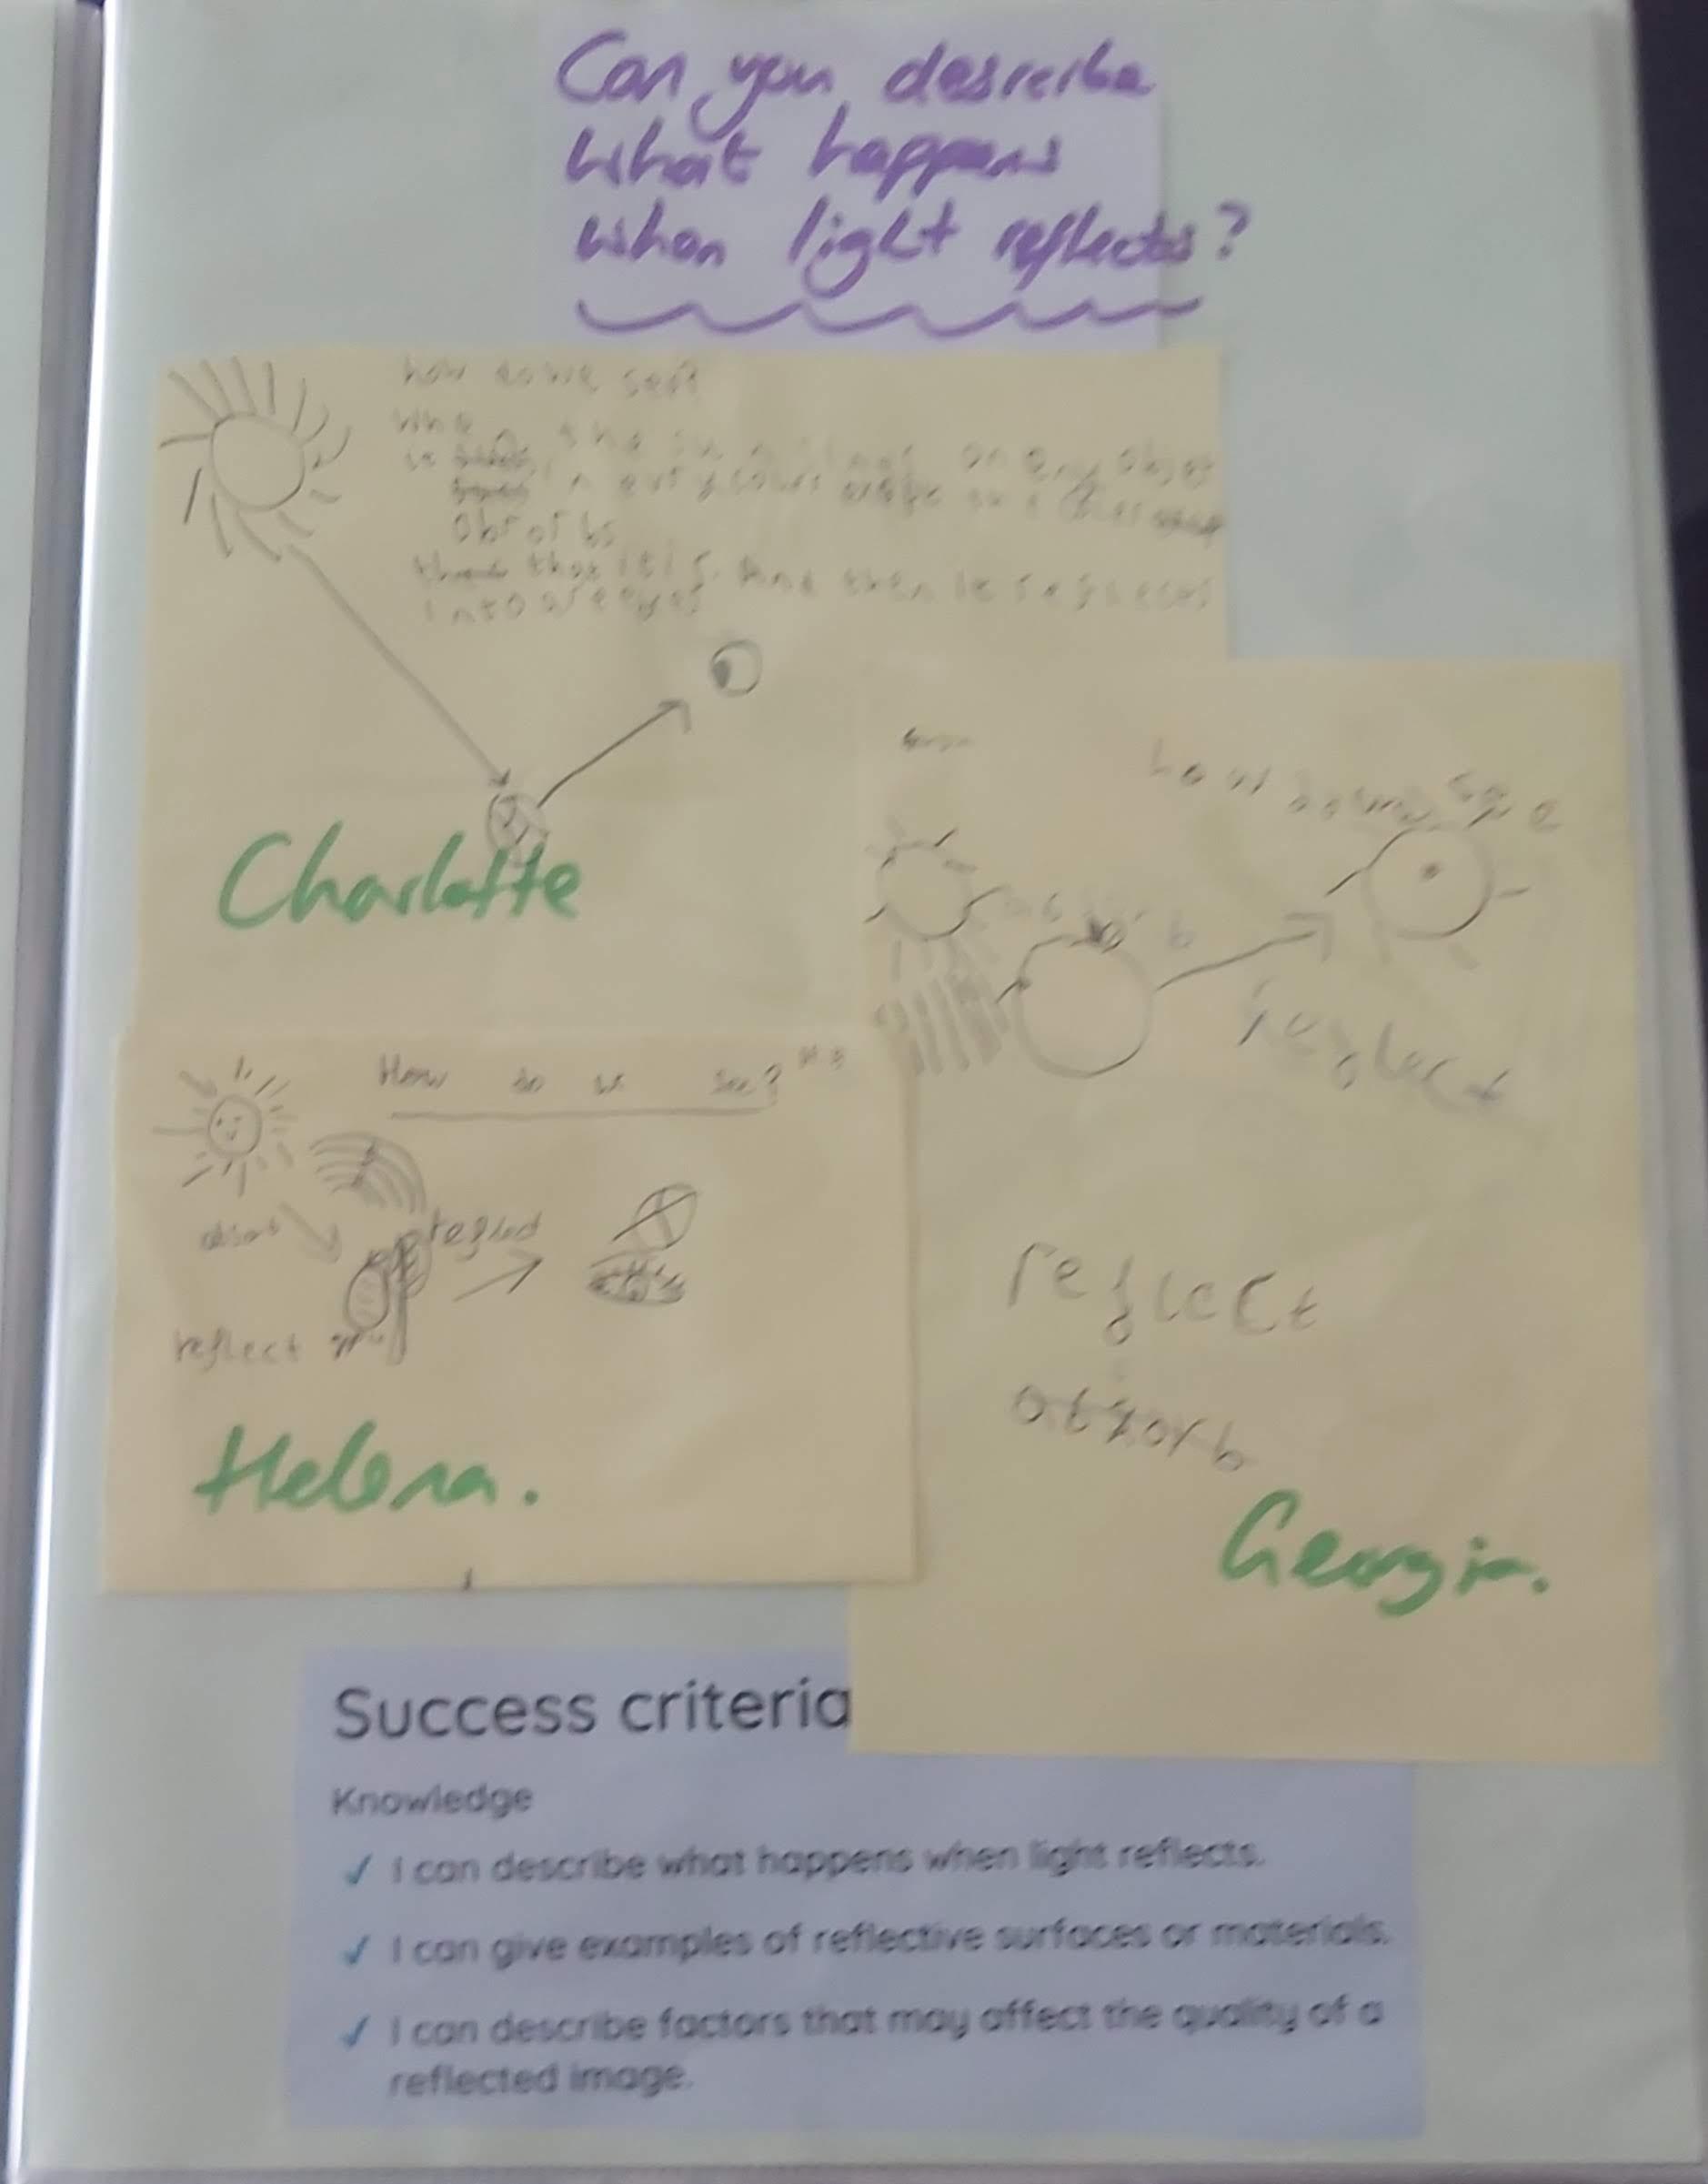 Can you desrcribe
what happens
when light reflects?
how do we see?
on eny objec
obsorbs
that it is. And then it reflects
into are eyes
Charlotte
How do we see
absorb
reflect
reflect
absorb
Georgia.
How do we see?
reflect
reflect
Helena.
Success criteria
Knowledge
✓ I can describe what happens when light reflects.
✓ I can give examples of reflective surfaces or materials.
✓ I can describe factors that may affect the quality of a
reflected image.